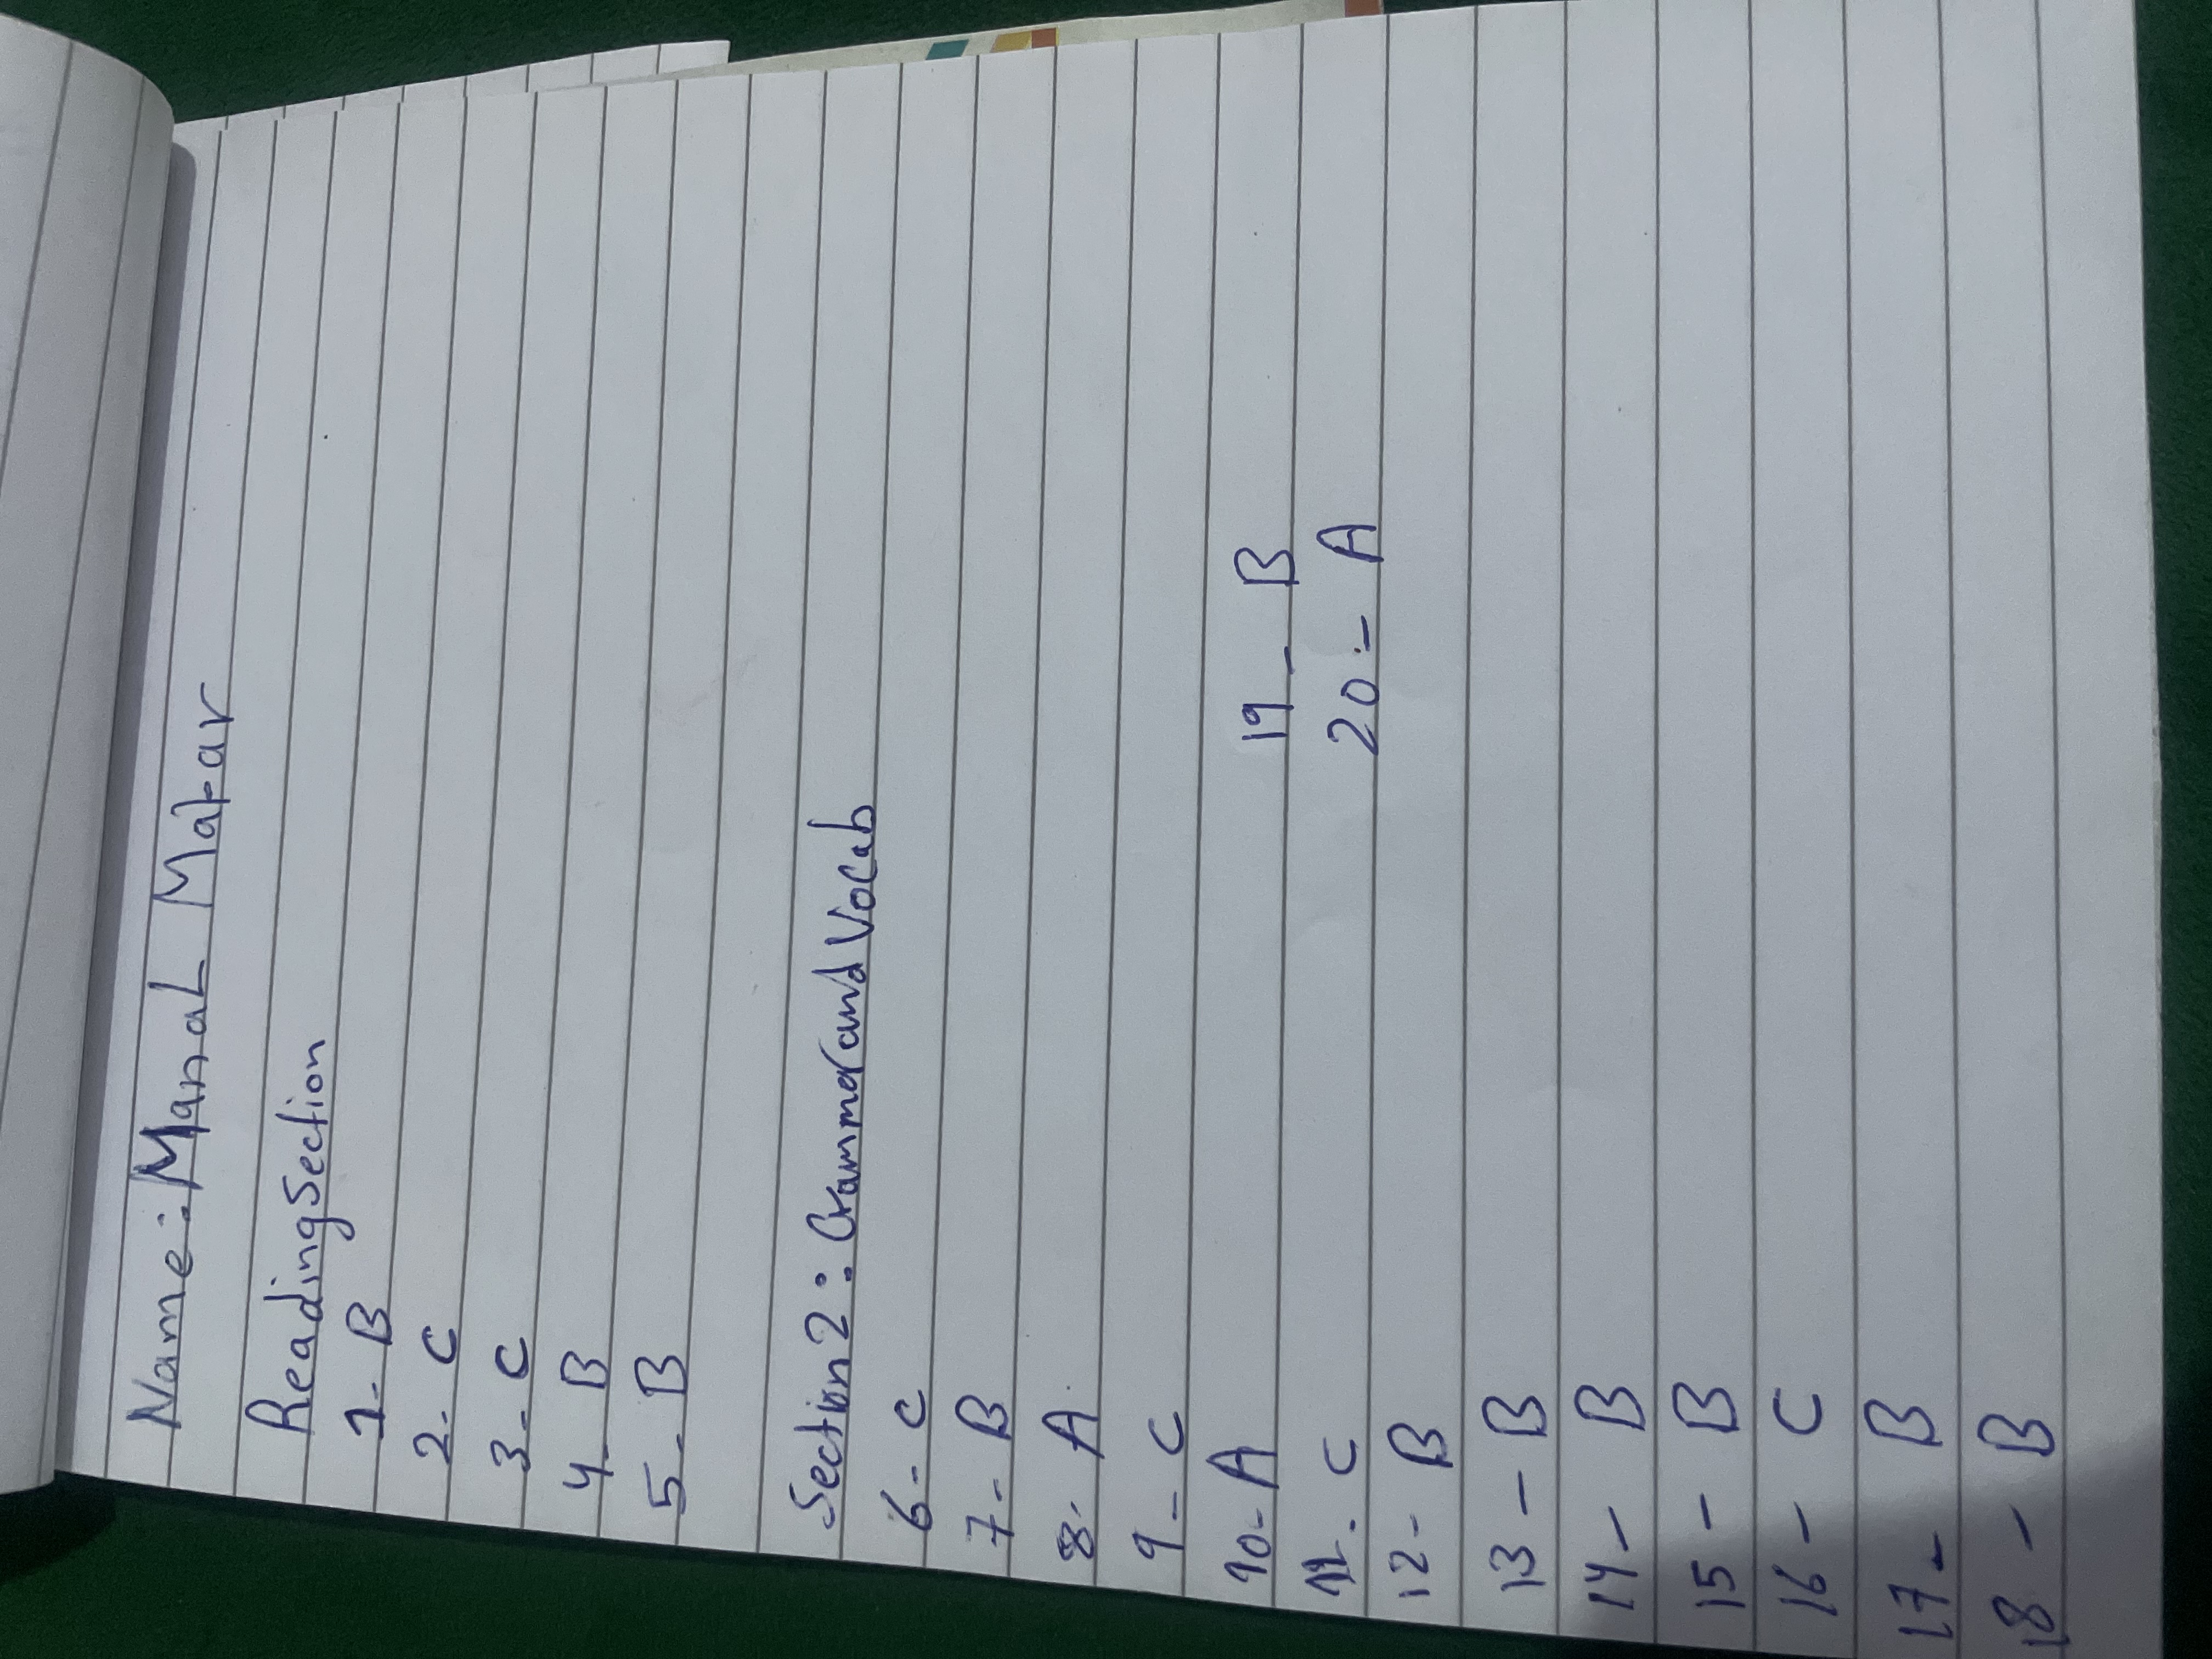 Name: Manal Makar
Reading Section
1- B
2- C
3- C
4- B
5- B
Section 2: Grammer and Vocab
6- C
7- B
8- A
9- C
10- A
19- B
11- C
20- A
12- B
13- B
14- B
15- B
16- C
17- B
18- B